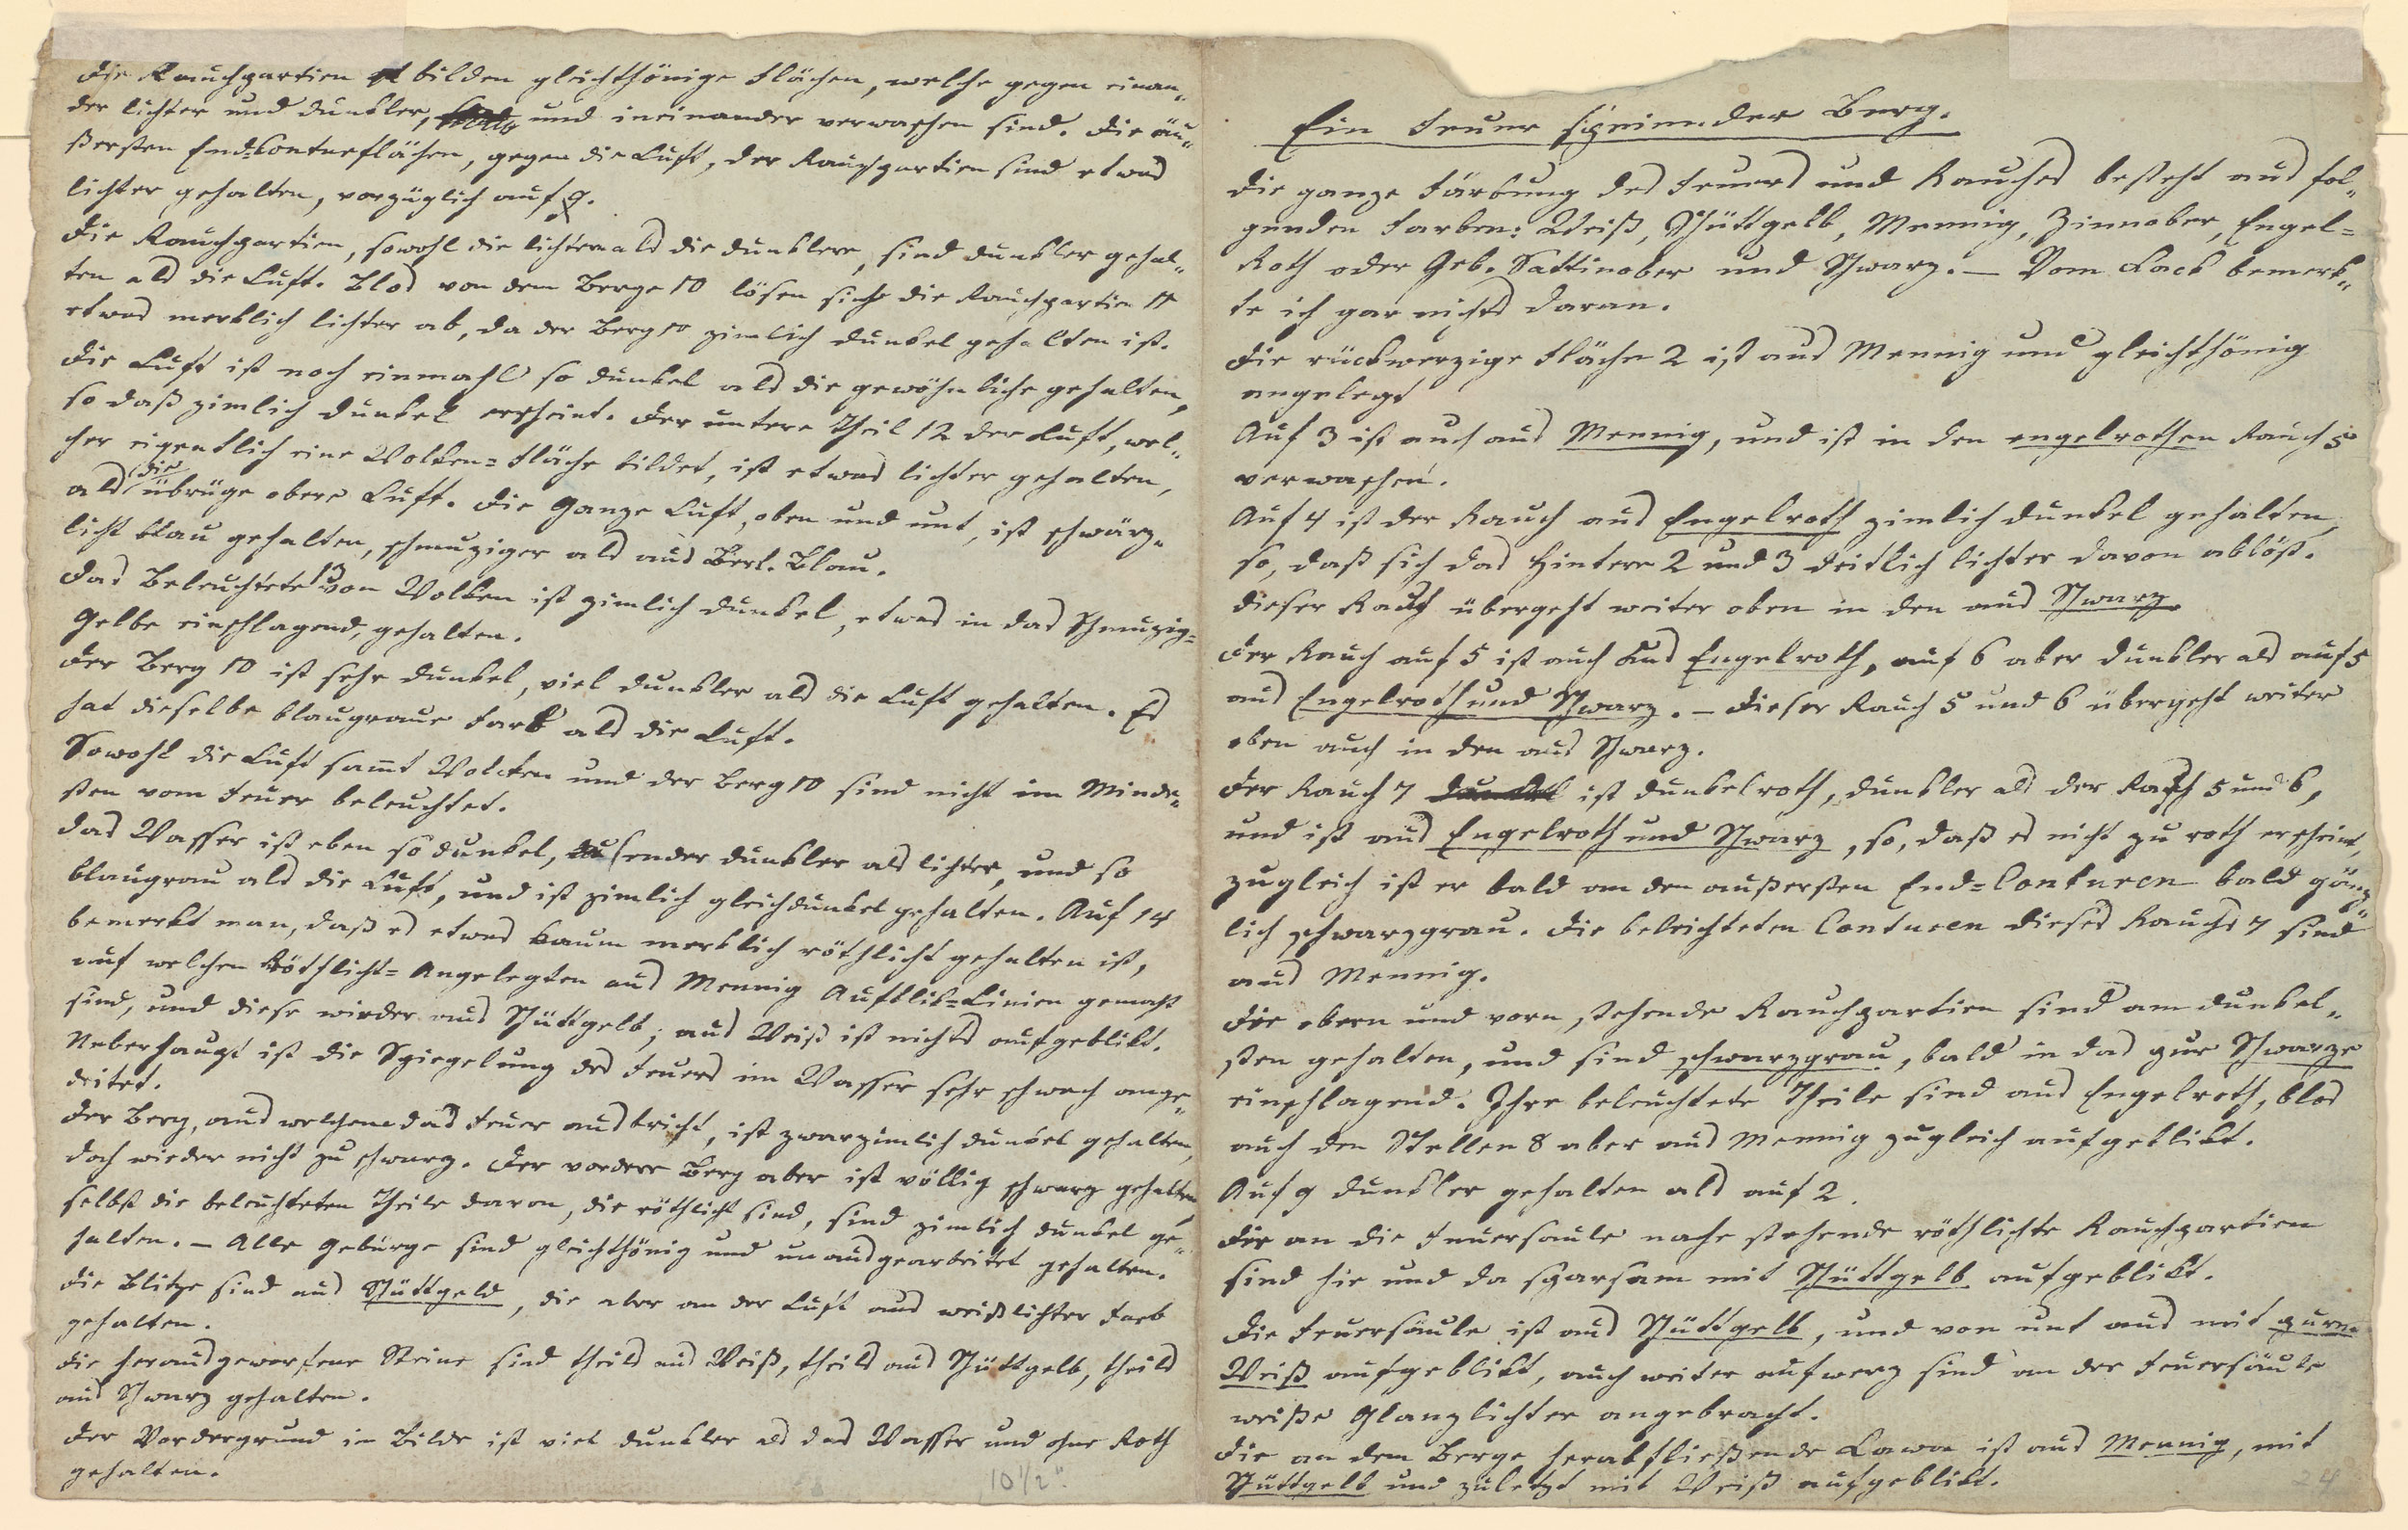 Die Rauchpartien bilden gleichthönige Flächen, welche gegen einan„
der lichter und dunkler, und ineinander verwaschen sind. Die äu„
ßersten End=Conturflächen, gegen die Luft, der Rauchpartien sind etwas
lichter gehalten, vorzüglich auf 9.
Die Rauchpartien, sowohl die lichtern als die dunklere, sind dunkler gehal„
ten als die Luft. Blos von dem Berge 10 lösen sich die Rauchpartien 11
etwas merklich lichter ab, da der Berg 10 zimlich dunkel gehalten ist.
Die Luft ist noch einmahl so dunkel als die gewöhnliche gehalten,
so daß zimlich dunkel erscheint. Der untere Theil 12 der Luft, wel„
cher eigentlich eine Wolken=Fläche bildet, ist etwas lichter gehalten,
als die übrüge obere Luft. Die Ganze Luft, oben und unt, ist schwärz„
licht blau gehalten, schmuziger als aus Berl. Blau.
Das Beleuchtete 13 von Wolken ist zimlich dunkel, etwas in das Schmuzig=
Gelbe einschlagend, gehalten.
Der Berg 10 ist sehr dunkel, viel dunkler als die Luft gehalten. Es
hat dieselbe blaugraue Farb als die Luft.
Sowohl die Luft sammt Wolcken und der Berg 10 sind nicht im Minde„
sten vom Feuer beleuchtet.
Das Wasser ist eben so dunkel, ender dunkler als lichter, und so
blaugrau als die Luft, und ist zimlich gleichdunkel gehalten. Auf 14
bemerkt man, daß es etwas kaum merklich röthlicht gehalten ist,
auf welchen Röthlicht=Angelegten aus Mennig Aufblik=Linien gemacht
sind, und diese wieder aus Schüttgelb; aus Weiß ist nichts aufgeblikt.
Ueberhaupt ist die Spiegelung des Feuers im Wasser sehr schwach ange„
deitet.
Der Berg, aus welchem das Feuer ausbricht, ist zwar zimlich dunkel gehalten,
doch wieder nicht zu schwarz. Der vordere Berg aber ist völlig schwarz gehalten
selbst die beleuchteten Theile davon, die röthlicht sind, sind zimlich dunkel ge„
halten. – Alle Gebürge sind gleichthönig und unausgearbeitet gehalten.
Die Blitze sind aus Schüttgelb, die aber an der Luft aus weißlichter Farb
gehalten.
Die herausgeworfene Steine sind theils aus Weiß, theils aus Schüttgelb, theils
aus Schwarz gehalten.
Der Vordergrund im Bilde ist viel dunkler als das Wasser und ohne Roth
gehalten.
10 1/2".
Ein Feuer speiender Berg.
Die ganze Färbung des Feuers und Rauches besteht aus fol„
genden Farben: Weiß, Schüttgelb, Mennig, Zinnober, Engel=
Roth oder Geb. Sattinober und Schwarz. – Vom Lack bemerk„
te ich gar nichts daran.
Die rückwerzige Fläche 2 ist aus Mennig und gleichthönig
angelegt
Auf 3 ist auch aus Mennig, und ist in den engelrothen Rauch 5
verwaschen.
Auf 4 ist der Rauch aus Engelroth zimlich dunkel gehalten,
so, daß sich das Hintere 2 und 3 deitlich lichter davon ablöst.
Dieser Rauch übergeht weiter oben in den aus Schwarz.
Der Rauch auf 5 ist auch aus Engelroth, auf 6 aber dunkler als auf 5
aus Engelroth und Schwarz. – Dieser Rauch 5 und 6 übergeht weiter
oben auch in den aus Schwarz.
Der Rauch 7 ist dunkelroth, dunkler als der Rauch 5 und 6,
und ist aus Engelroth und Schwarz, so, daß es nicht zu roth erscheint,
zugleich ist er bald an den äußersten End=Conturen bald gänz„
lich schwarzgrau. Die beleichteten Conturen dieses Rauchs 7 sind
aus Mennig.
Die obern und vorn stehende Rauchpartien sind am dunkel„
sten gehalten, und sind schwarzgrau, bald in das pure Schwarze
einschlagend. Ihre beleuchtete Theile sind aus Engelroth, blos
auch den Stellen 8 aber aus Mennig zugleich aufgeblikt.
Auf 9 dunkler gehalten als auf 2.
Die an die Feuersaule nahe stehende röthlichte Rauchpartien
sind hie und da sparsam mit Schüttgelb aufgeblikt.
Die Feuersäule ist aus Schüttgelb, und von unt aus mit puren
Weiß aufgeblikt, auch weiter aufwerz sind an der Feuersäule
weiße Glanzlichter angebracht.
Die an dem Berge herabfließende Lawa ist aus Mennig, mit
Schüttgelb und zuletzt mit Weiß aufgeblikt.
24